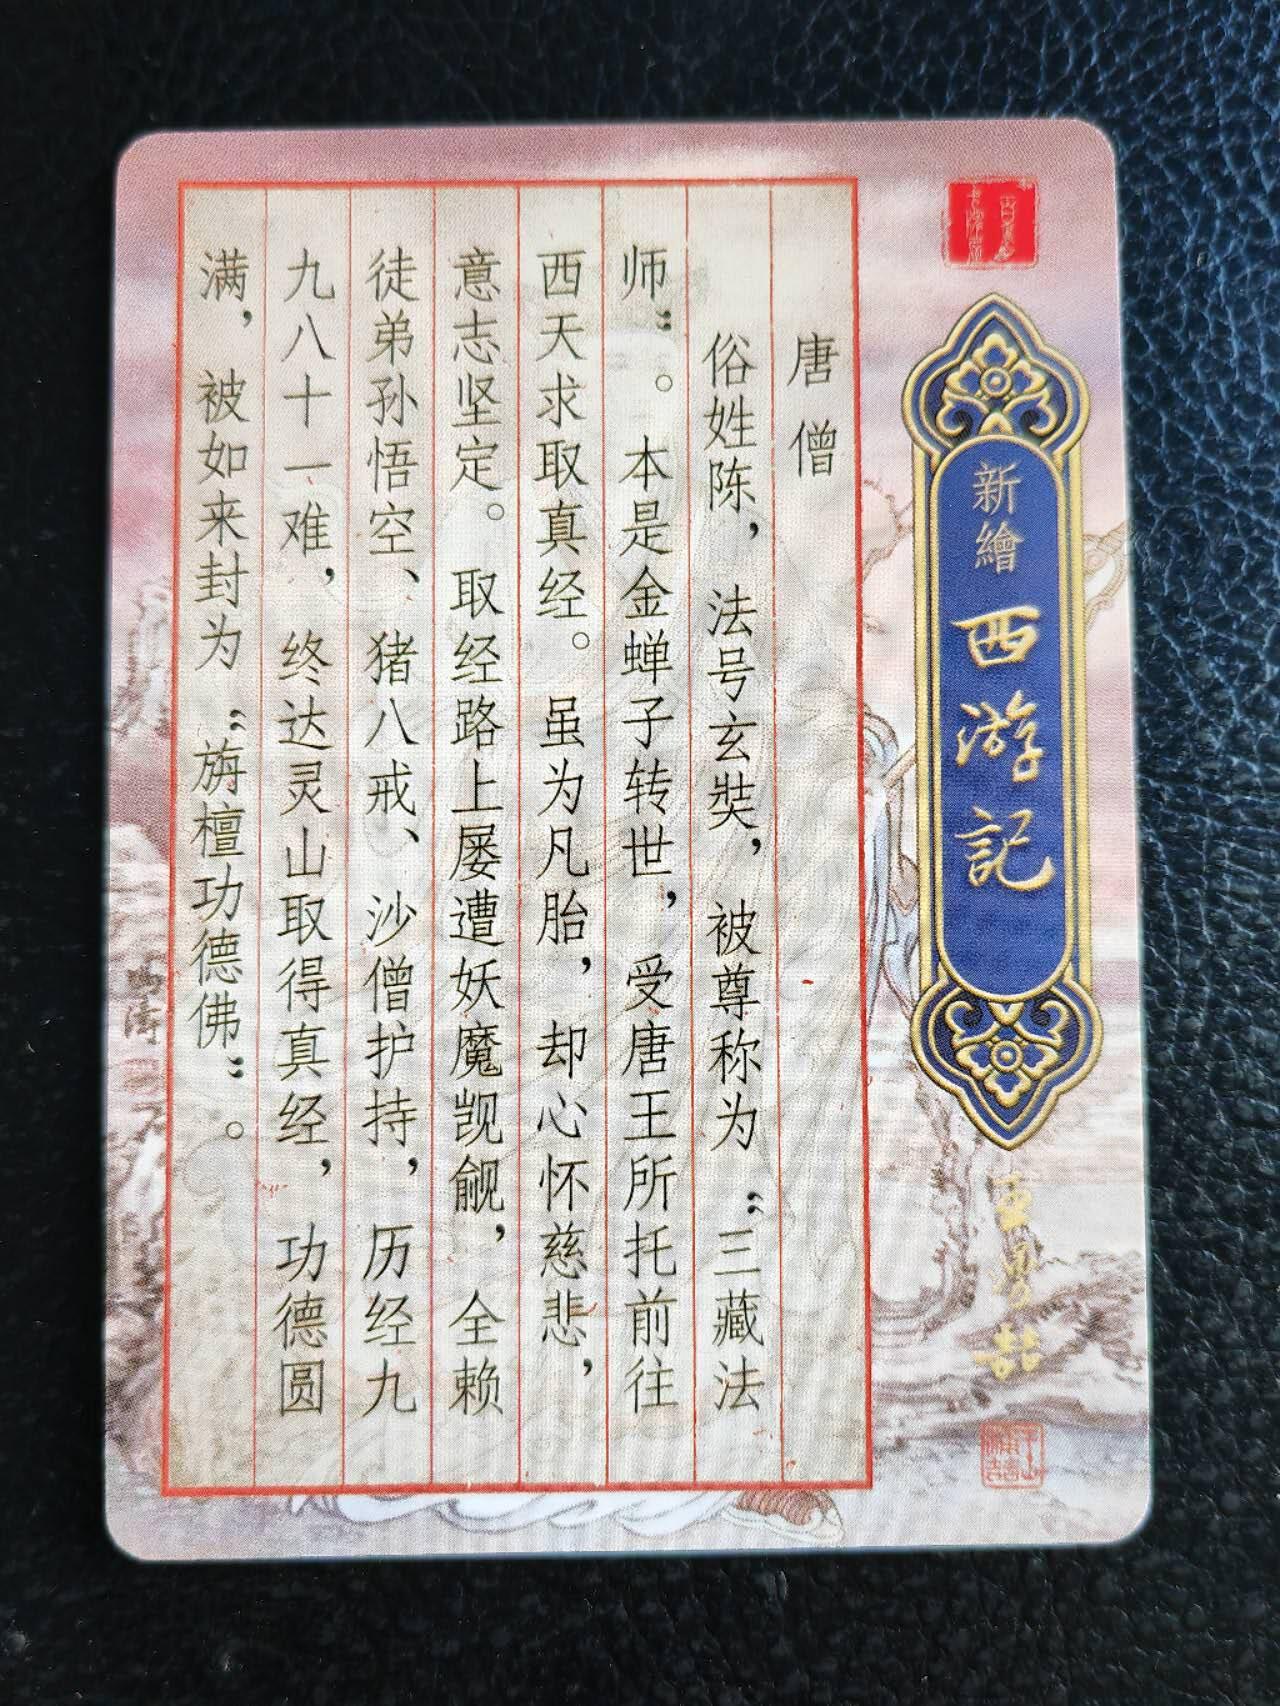 新繪西游記
唐僧
俗姓陈，法号玄奘，被尊称为“三藏法
师”。本是金蝉子转世，受唐王所托前往
西天求取真经。虽为凡胎，却心怀慈悲，
意志坚定。取经路上屡遭妖魔觊觎，全赖
徒弟孙悟空、猪八戒、沙僧护持，历经九
九八十一难，终达灵山取得真经，功德圆
满，被如来封为“旃檀功德佛”。